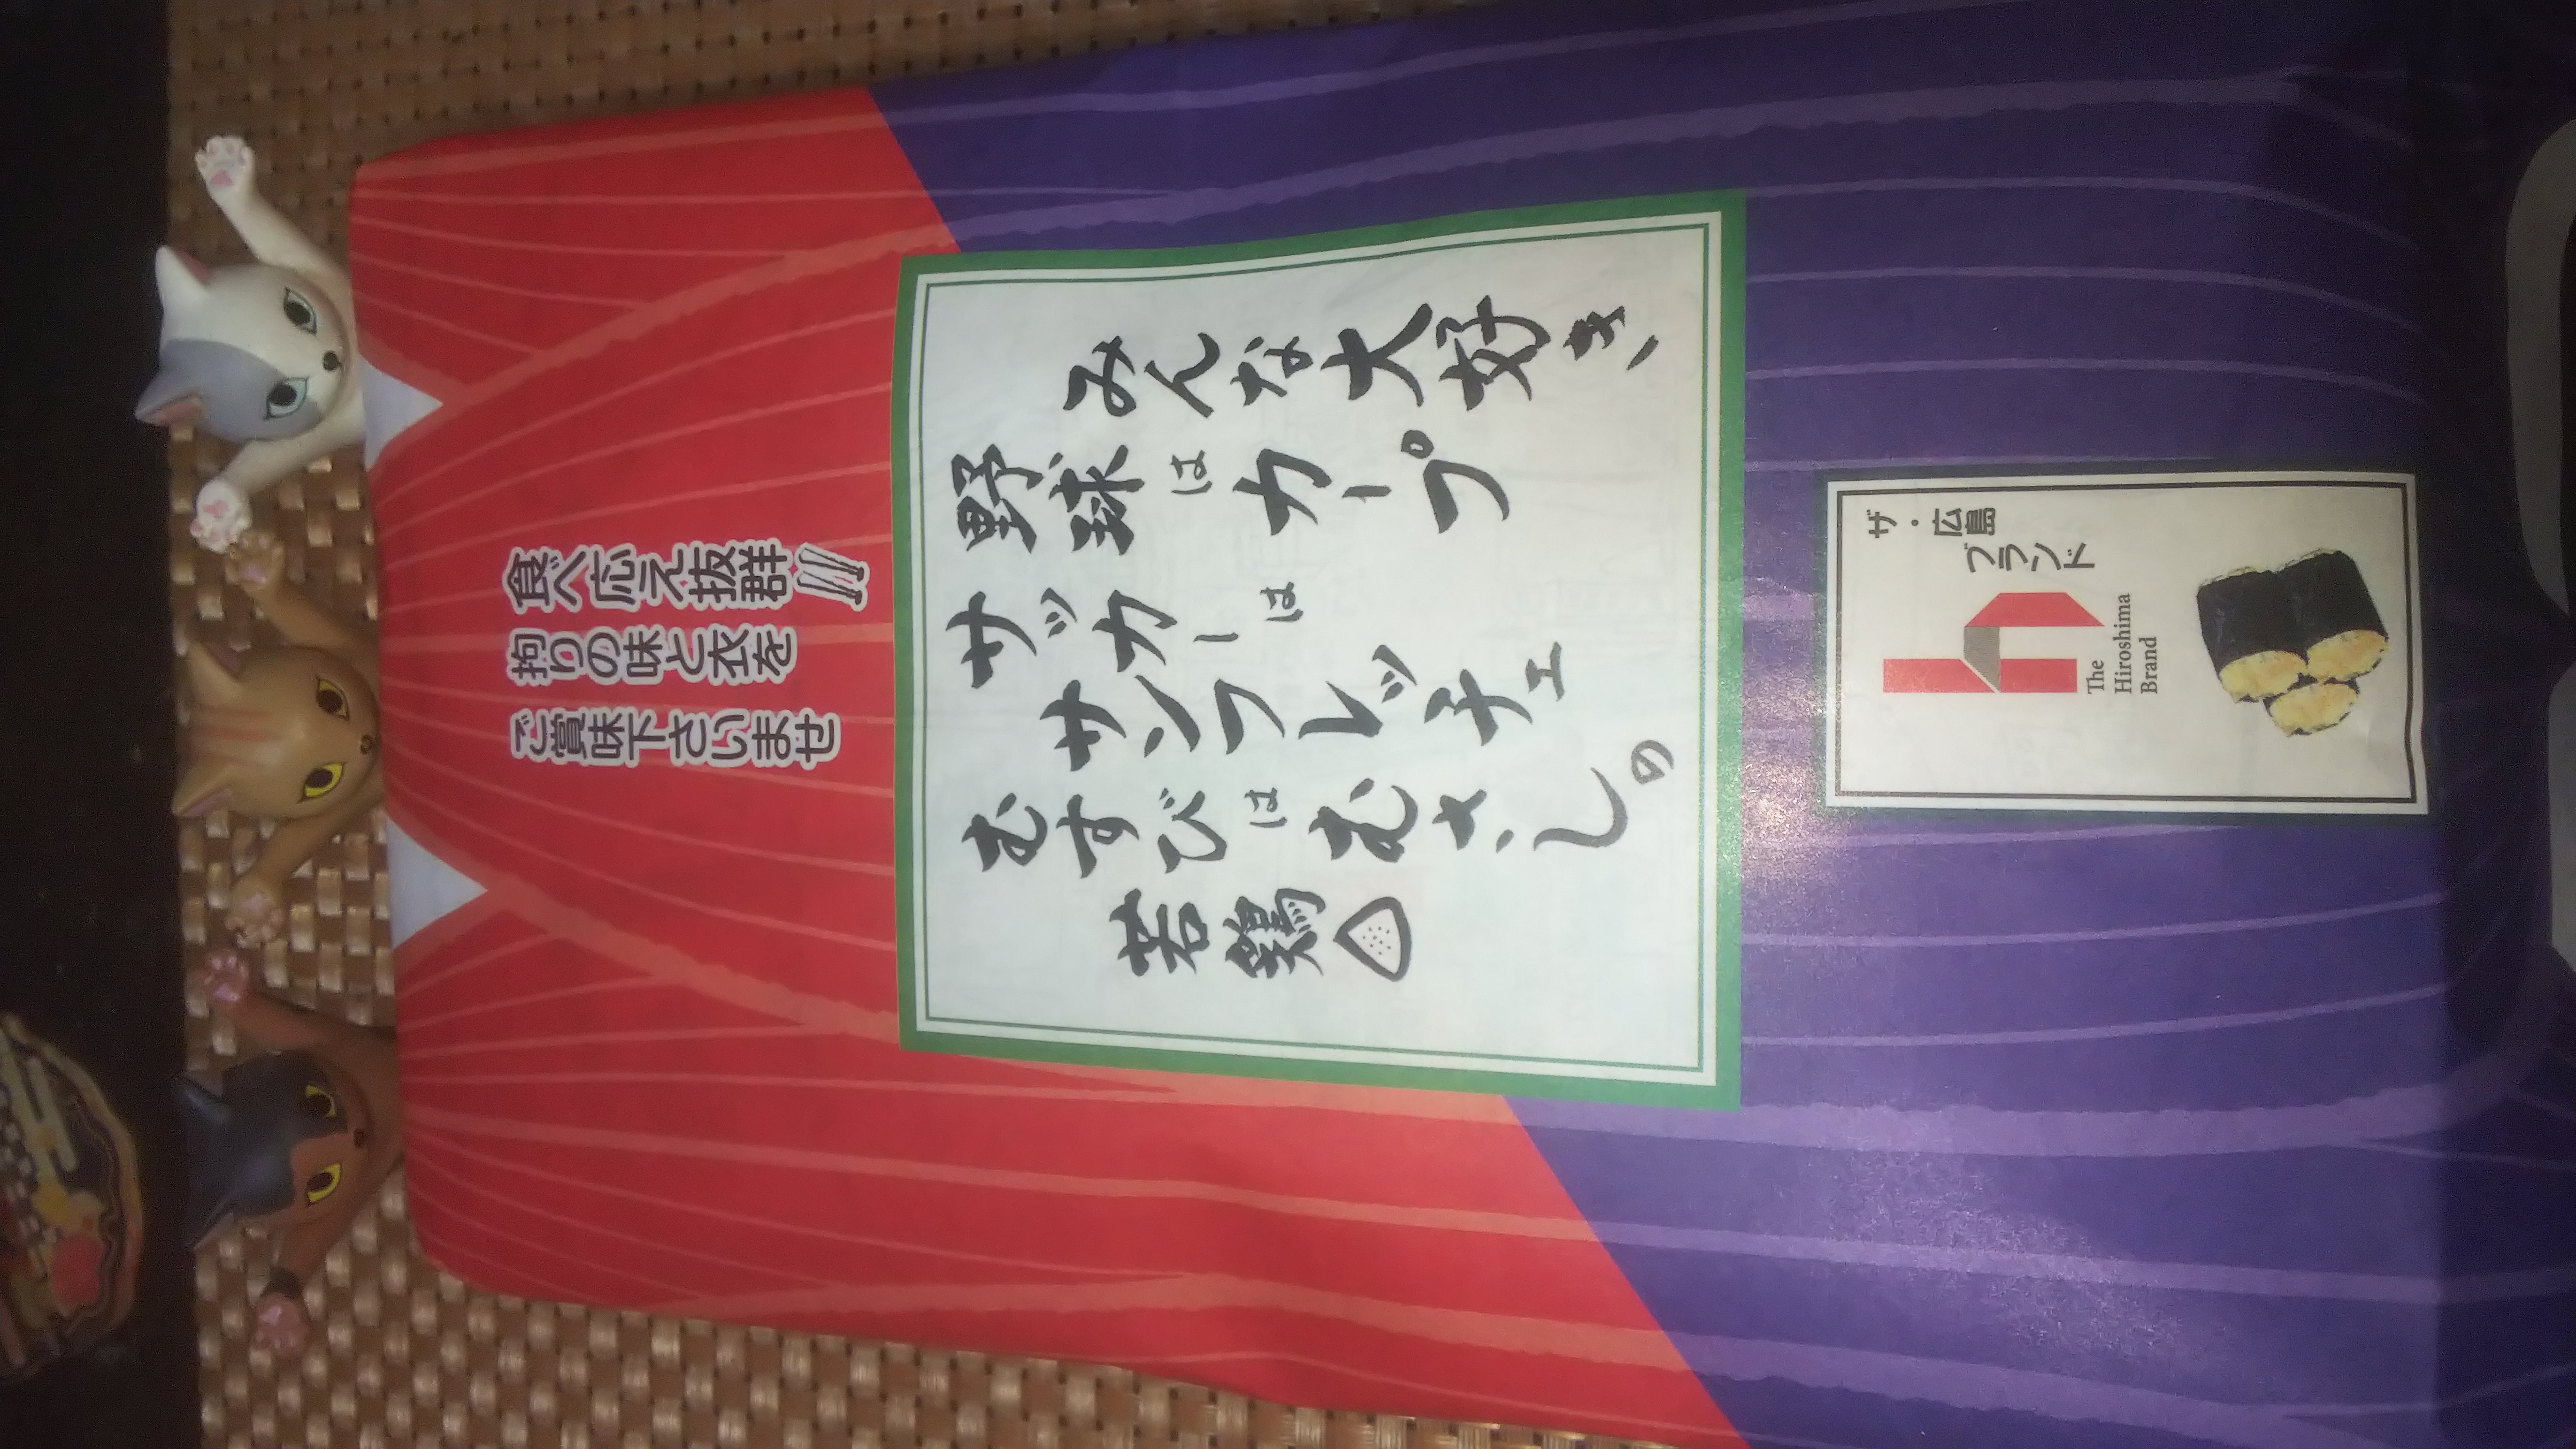 食べ応え抜群!!!
拘りの味と衣を
ご賞味下さいませ
みんな大好き、
野球はカープ
サッカーは
サンフレッチェ
むすびはむさしの
若鶏
ザ・広島
ブランド
The
Hiroshima
Brand